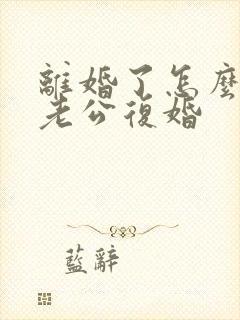 離婚了怎麼
老公復婚
藍辭